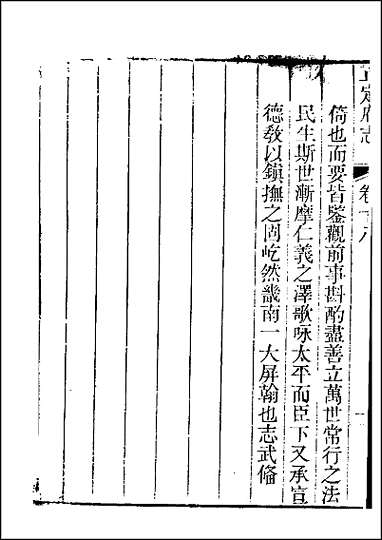 正定府志 卷十八
倚也而要皆鑒觀前事斟酌盡善立萬世常行之法
民生斯世漸摩仁義之澤歌咏太平而臣下又承宣
德敎以鎭撫之固屹然畿南一大屏翰也志武俻